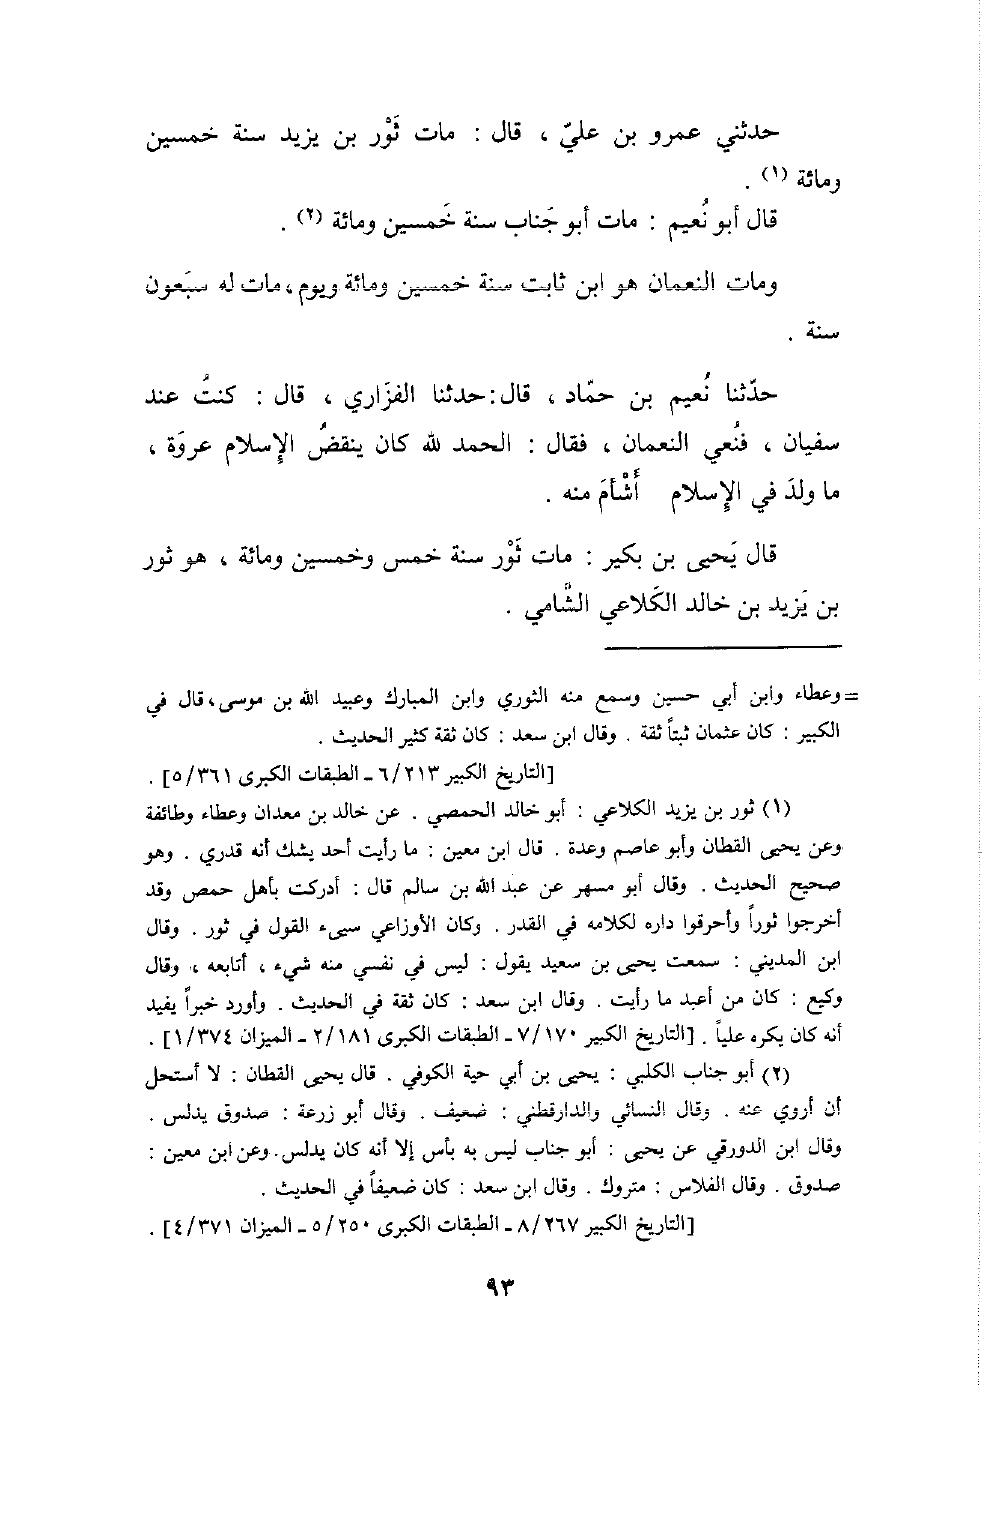 حدثني عمرو بن عليّ ، قال : مات ثَوْر بن يزيد سنة خمسين
ومائة (١) .
قال أبو نُعيم : مات أبو جَناب سنة خَمسين ومائة (٢) .
ومات النعمان هو ابن ثابت سنة خمسين ومائة ويوم ، مات له سبَعون
سنة .
حدّثنا نُعيم بن حمّاد ، قال : حدثنا الفزَاري ، قال : كنتُ عند
سفيان ، فنُعي النعمان ، فقال : الحمد لله كان ينقضُ الإسلام عروَة ،
ما ولدَ في الإسلام أَشْأمَ منه .
قال يَحيى بن بكير : مات ثَوْر سنة خمس وخمسين ومائة ، هو ثور
بن يَزيد بن خالد الكَلاعي الشَّامي .
= وعطاء وابن أبي حسين وسمع منه الثوري وابن المبارك وعبيد الله بن موسى ، قال في
الكبير : كان عثمان ثبتاً ثقة . وقال ابن سعد : كان ثقة كثير الحديث .
[التاريخ الكبير ٦/٢١٣ - الطبقات الكبرى ٥/٣٦١] .
(١) ثور بن يزيد الكلاعي : أبو خالد الحمصي . عن خالد بن معدان وعطاء وطائفة
وعن يحيى القطان وأبو عاصم وعدة . قال ابن معين : ما رأيت أحد يشك أنه قدري . وهو
صحيح الحديث . وقال أبو مسهر عن عبد الله بن سالم قال : أدركت بأهل حمص وقد
أخرجوا ثوراً وأحرقوا داره لكلامه في القدر . وكان الأوزاعي سيىء القول في ثور . وقال
ابن المديني : سمعت يحيى بن سعيد يقول : ليس في نفسي منه شيء ، أتابعه ، وقال
وكيع : كان من أعبد ما رأيت . وقال ابن سعد : كان ثقة في الحديث . وأورد خبراً يفيد
أنه كان يكره علياً . [التاريخ الكبير ٧/١٧٠ - الطبقات الكبرى ٢/١٨١ - الميزان ١/٣٧٤] .
(٢) أبو جناب الكلبي : يحيى بن أبي حية الكوفي . قال يحيى القطان : لا أستحل
أن أروي عنه . وقال النسائي والدارقطني : ضعيف . وقال أبو زرعة : صدوق يدلس .
وقال ابن الدورقي عن يحيى : أبو جناب ليس به بأس إلا أنه كان يدلس . وعن ابن معين :
صدوق . وقال الفلاس : متروك . وقال ابن سعد : كان ضعيفاً في الحديث .
[التاريخ الكبير ٨/٢٦٧ - الطبقات الكبرى ٥/٢٥٠ - الميزان ٤/٣٧١] .
٩٣